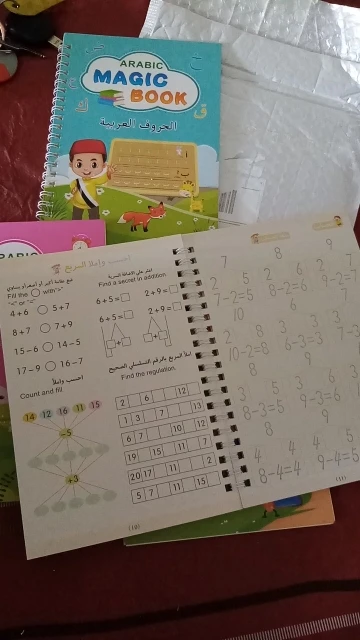 ARABIC
MAGIC
BOOK
الحروف العربية
احسب واملأ المربع
Fill the ◯ with ">"
"<" or "="
4+6 ◯ 5+7
8+7 ◯ 7+9
15-6 ◯ 14-5
17-9 ◯ 16-7
احسب واملأ
Count and fill
14 12 16 11 15
-5
+3
Find a secret in addition
6+5=□ 2+9=□
6+5=□ 2+9=□
□+□ □+□
املأ المربع بالرقم التسلسلي الصحيح
Find the regulation.
2 6 12
1 3 7 13
6 7 10 12
19 15 11 7
20 17 11 2
5 7 11 15
(10)
7 8 9
2 5 2 6 2 7
7-2=5 8-2=6 9-2=7
10 6 7
2 8 3 3 3
10-2=8 6-3=3 7-
8 9
3 5 3 6
8-3=5 9-3=6
8 9
4 4 4 5
8-4=4 9-4=5
(11)